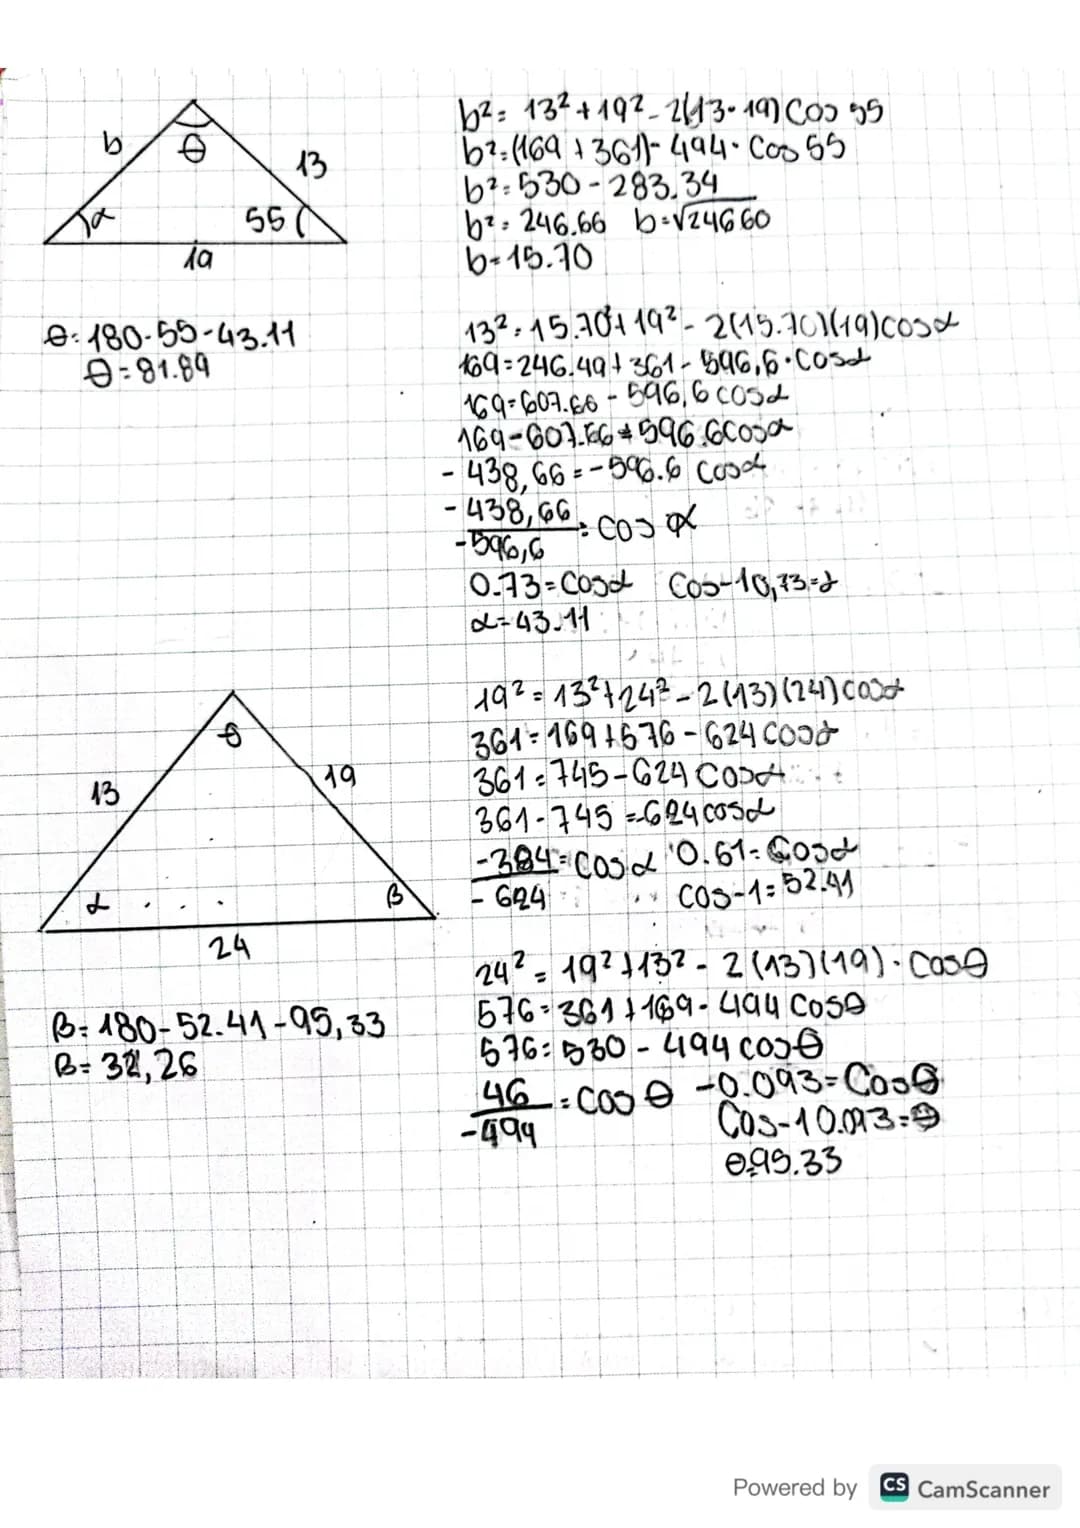 b
θ
13
α
55
19
b²= 13²+19²-2(13·19)Cos 55
b²=(169+361)-494·Cos 55
b²=530-283,34
b²= 246.66 b=√24660
b=15.70
θ=180-55-43.11
θ=81.89
13²=15.70²+19²-2(15.70)(19)cosα
169=246.49+361-596,6·Cosα
169=607.66-596,6cosα
169-607.66=596.6Cosα
-438,66=-596.6 Cosα
-438,66
-596,6
=Cos α
0.73=Cosα Cos-10,73=α
α=43.11
θ
13
19
α
β
24
19²=13²+24²-2(13)(24)cosα
361=169+576-624cosα
361=745-624Cosα
361-745=-624cosα
-384=Cosα 0.61=Cosα
-624 Cos-1=52.41
β=180-52.41-95,33
β=32,26
24²=19²+13²-2(13)(19)·Cosθ
576=361+169-494Cosθ
576=530-494cosθ
46
-494
=Cosθ -0.093=Cosθ
Cos-10.093=θ
θ=95.33
Powered by CS CamScanner